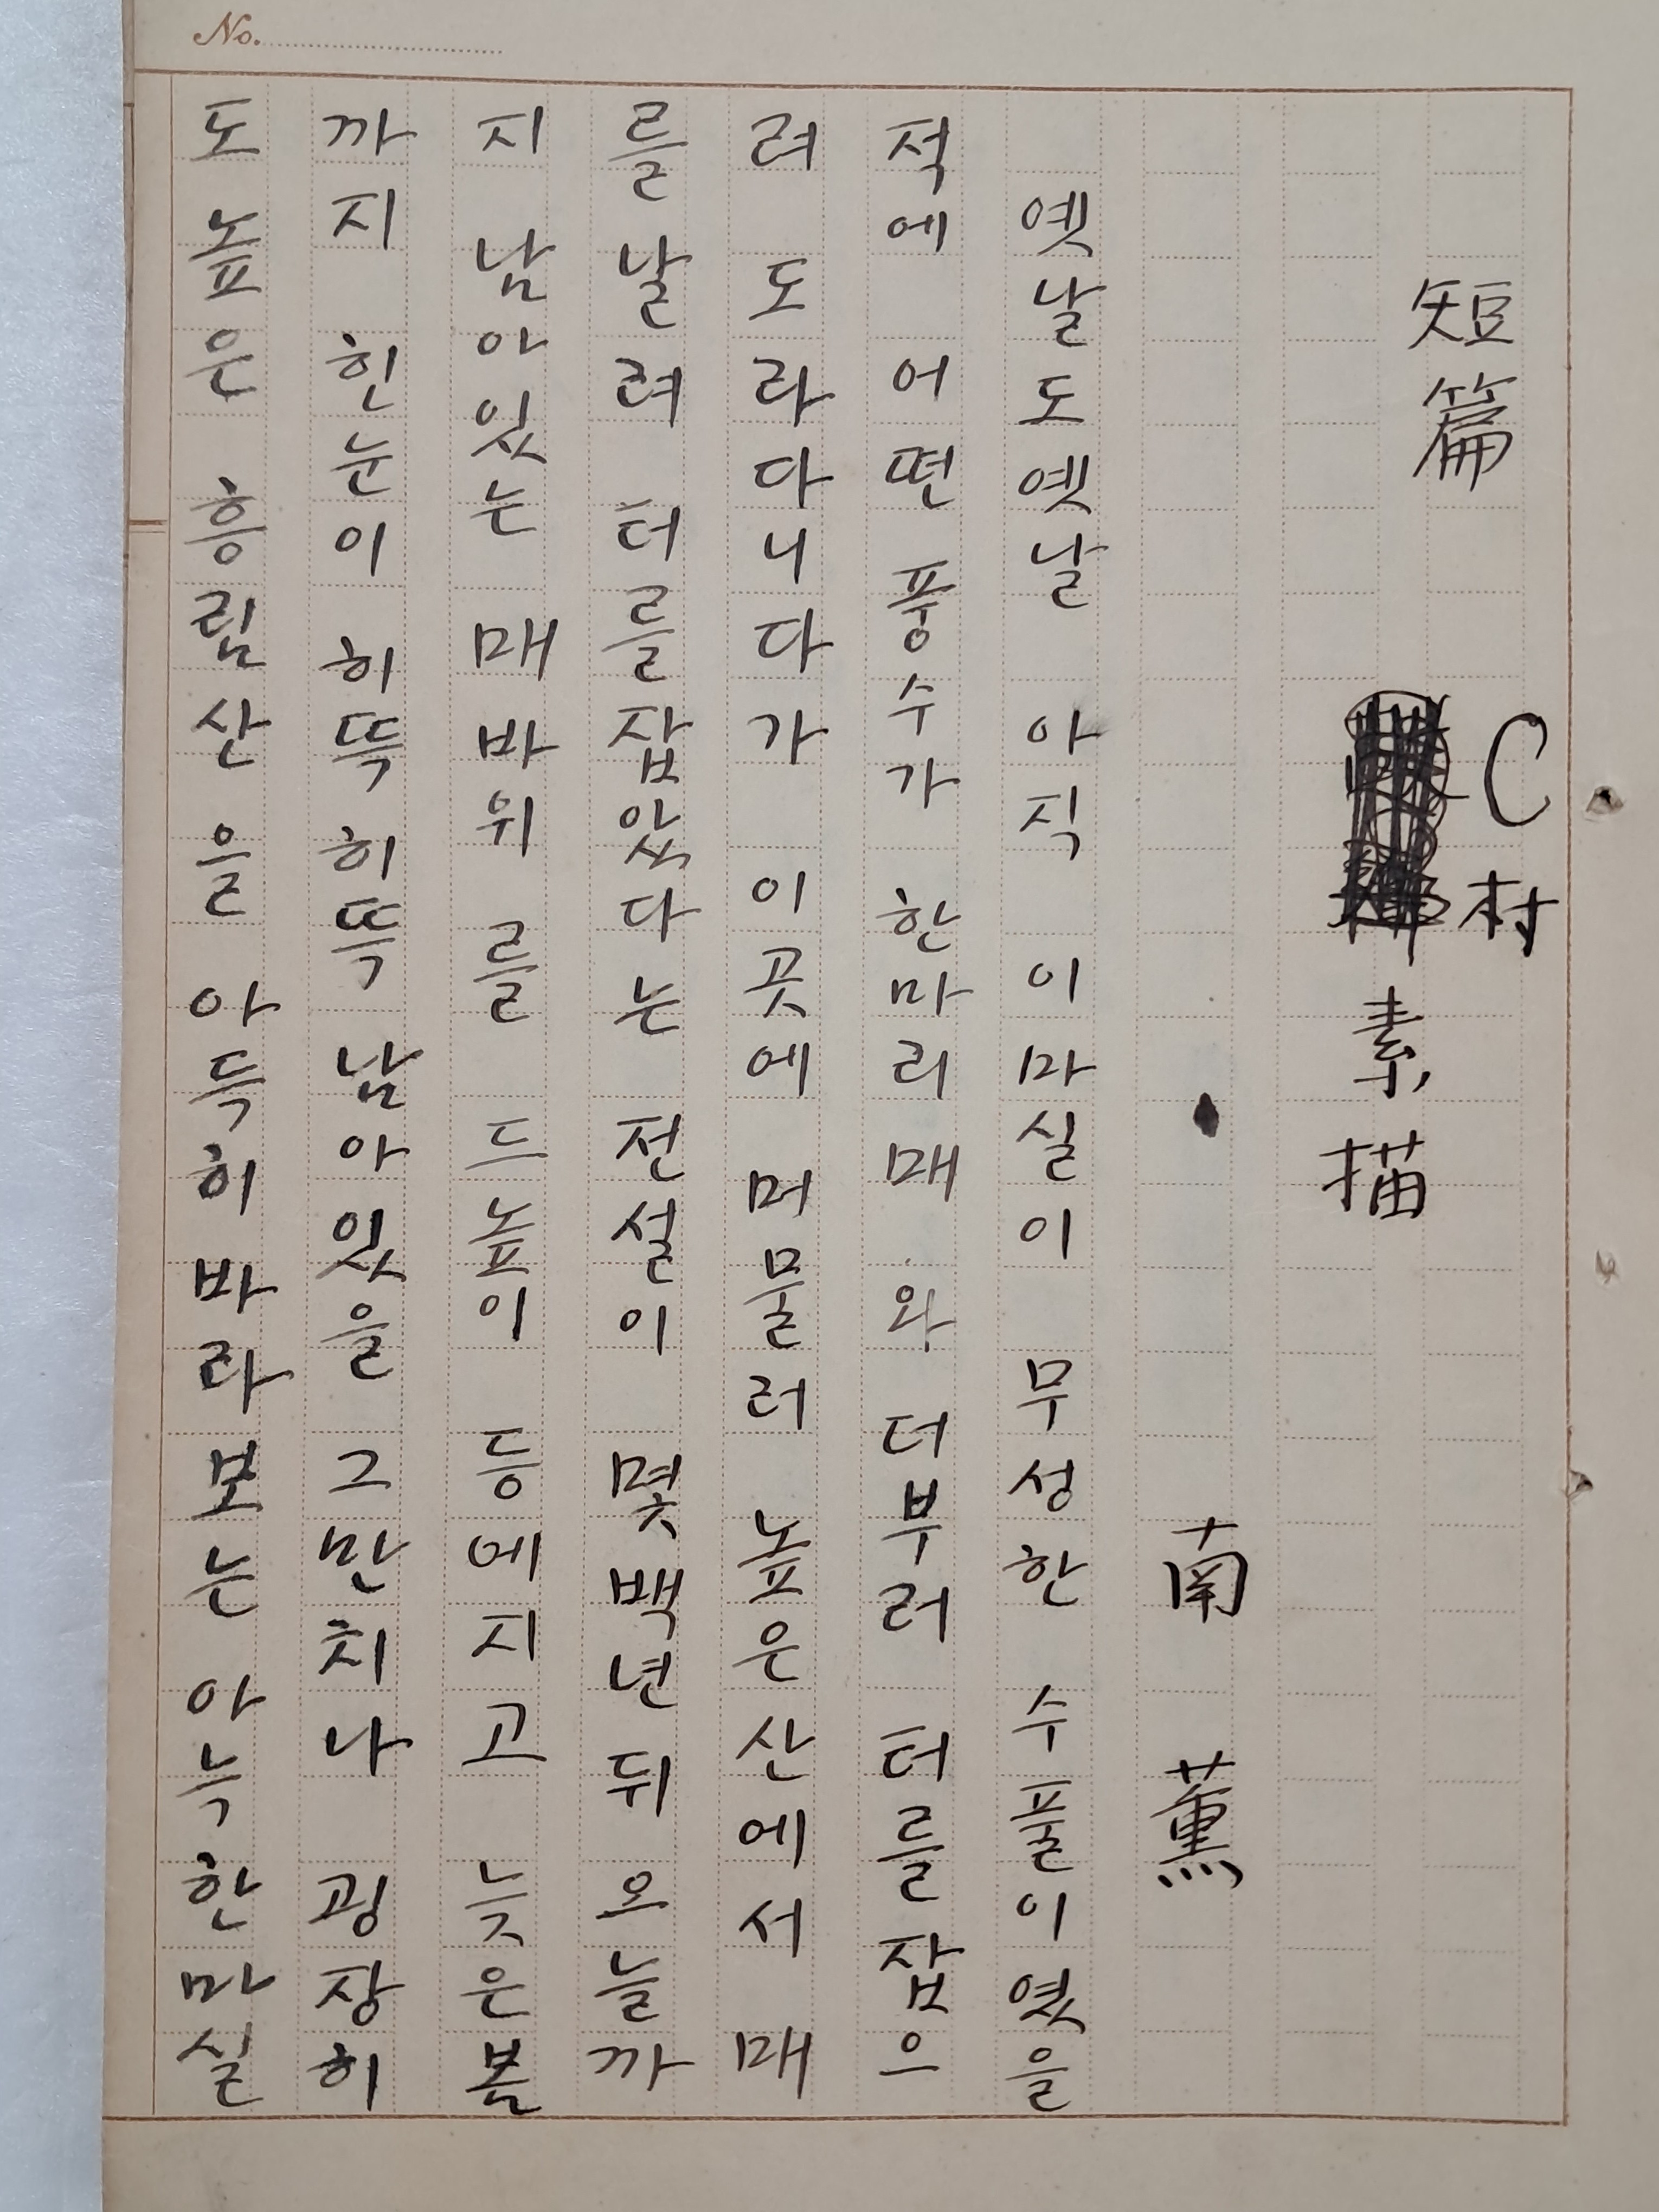 No.
短篇
C村
素描
南薰
옛날도옛날 아직 이마실이 무성한 수풀이였을
적에 어떤 풍수가 한마리 매 와 더부러 터를 잡으
려 도라다니다가 이곳에 머물러 높은산에서 매
를 날려 터를 잡았다는 전설이 몇백년 뒤 오늘까
지 남아있는 매바위를 드높이 등에지고 늦은봄
까지 힌눈이 히뜩히뜩 남아있을 그만치나 굉장히
도 높은 흥림산을 아득히 바라보는 아늑한마실